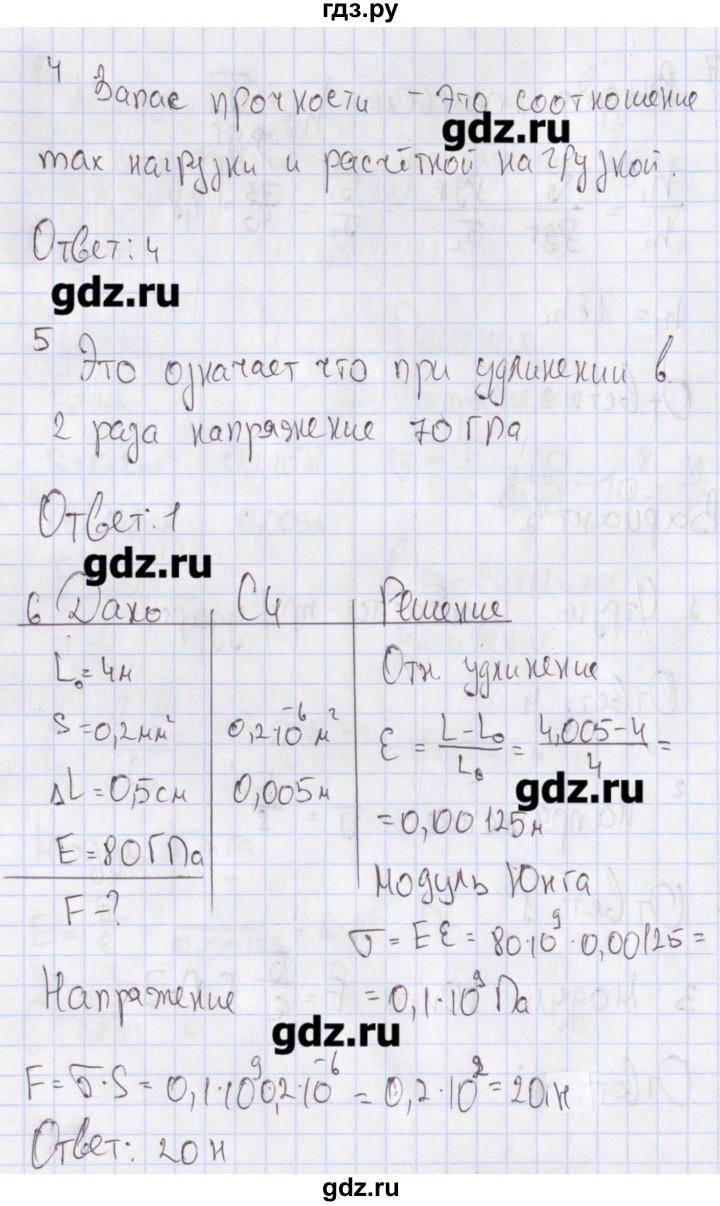 гдз.ру
4 Запас прочности - это соотношение
gdz.ru
max нагрузки и расчётной нагрузкой.
Ответ: 4
gdz.ru
5 Это означает что при удлинении в
2 раза напряжение 70 ГПа
Ответ: 1
gdz.ru
6 Дано СИ Решение
L₀ = 4м Отн удлинение
S = 0,2мм² 0,2·10⁻⁶ м² ε = (L - L₀)/L₀ = (4,005 - 4)/4 =
gdz.ru
ΔL = 0,5см 0,005м
= 0,00125м
E = 80ГПа
Модуль Юнга
F - ?
σ = Eε = 80·10⁹ · 0,00125 =
Напряжение = 0,1·10⁹ Па
gdz.ru
F = σ·S = 0,1·10⁹ 0,2·10⁻⁶ = 0,2·10² = 20 н
Ответ: 20 н
gdz.ru